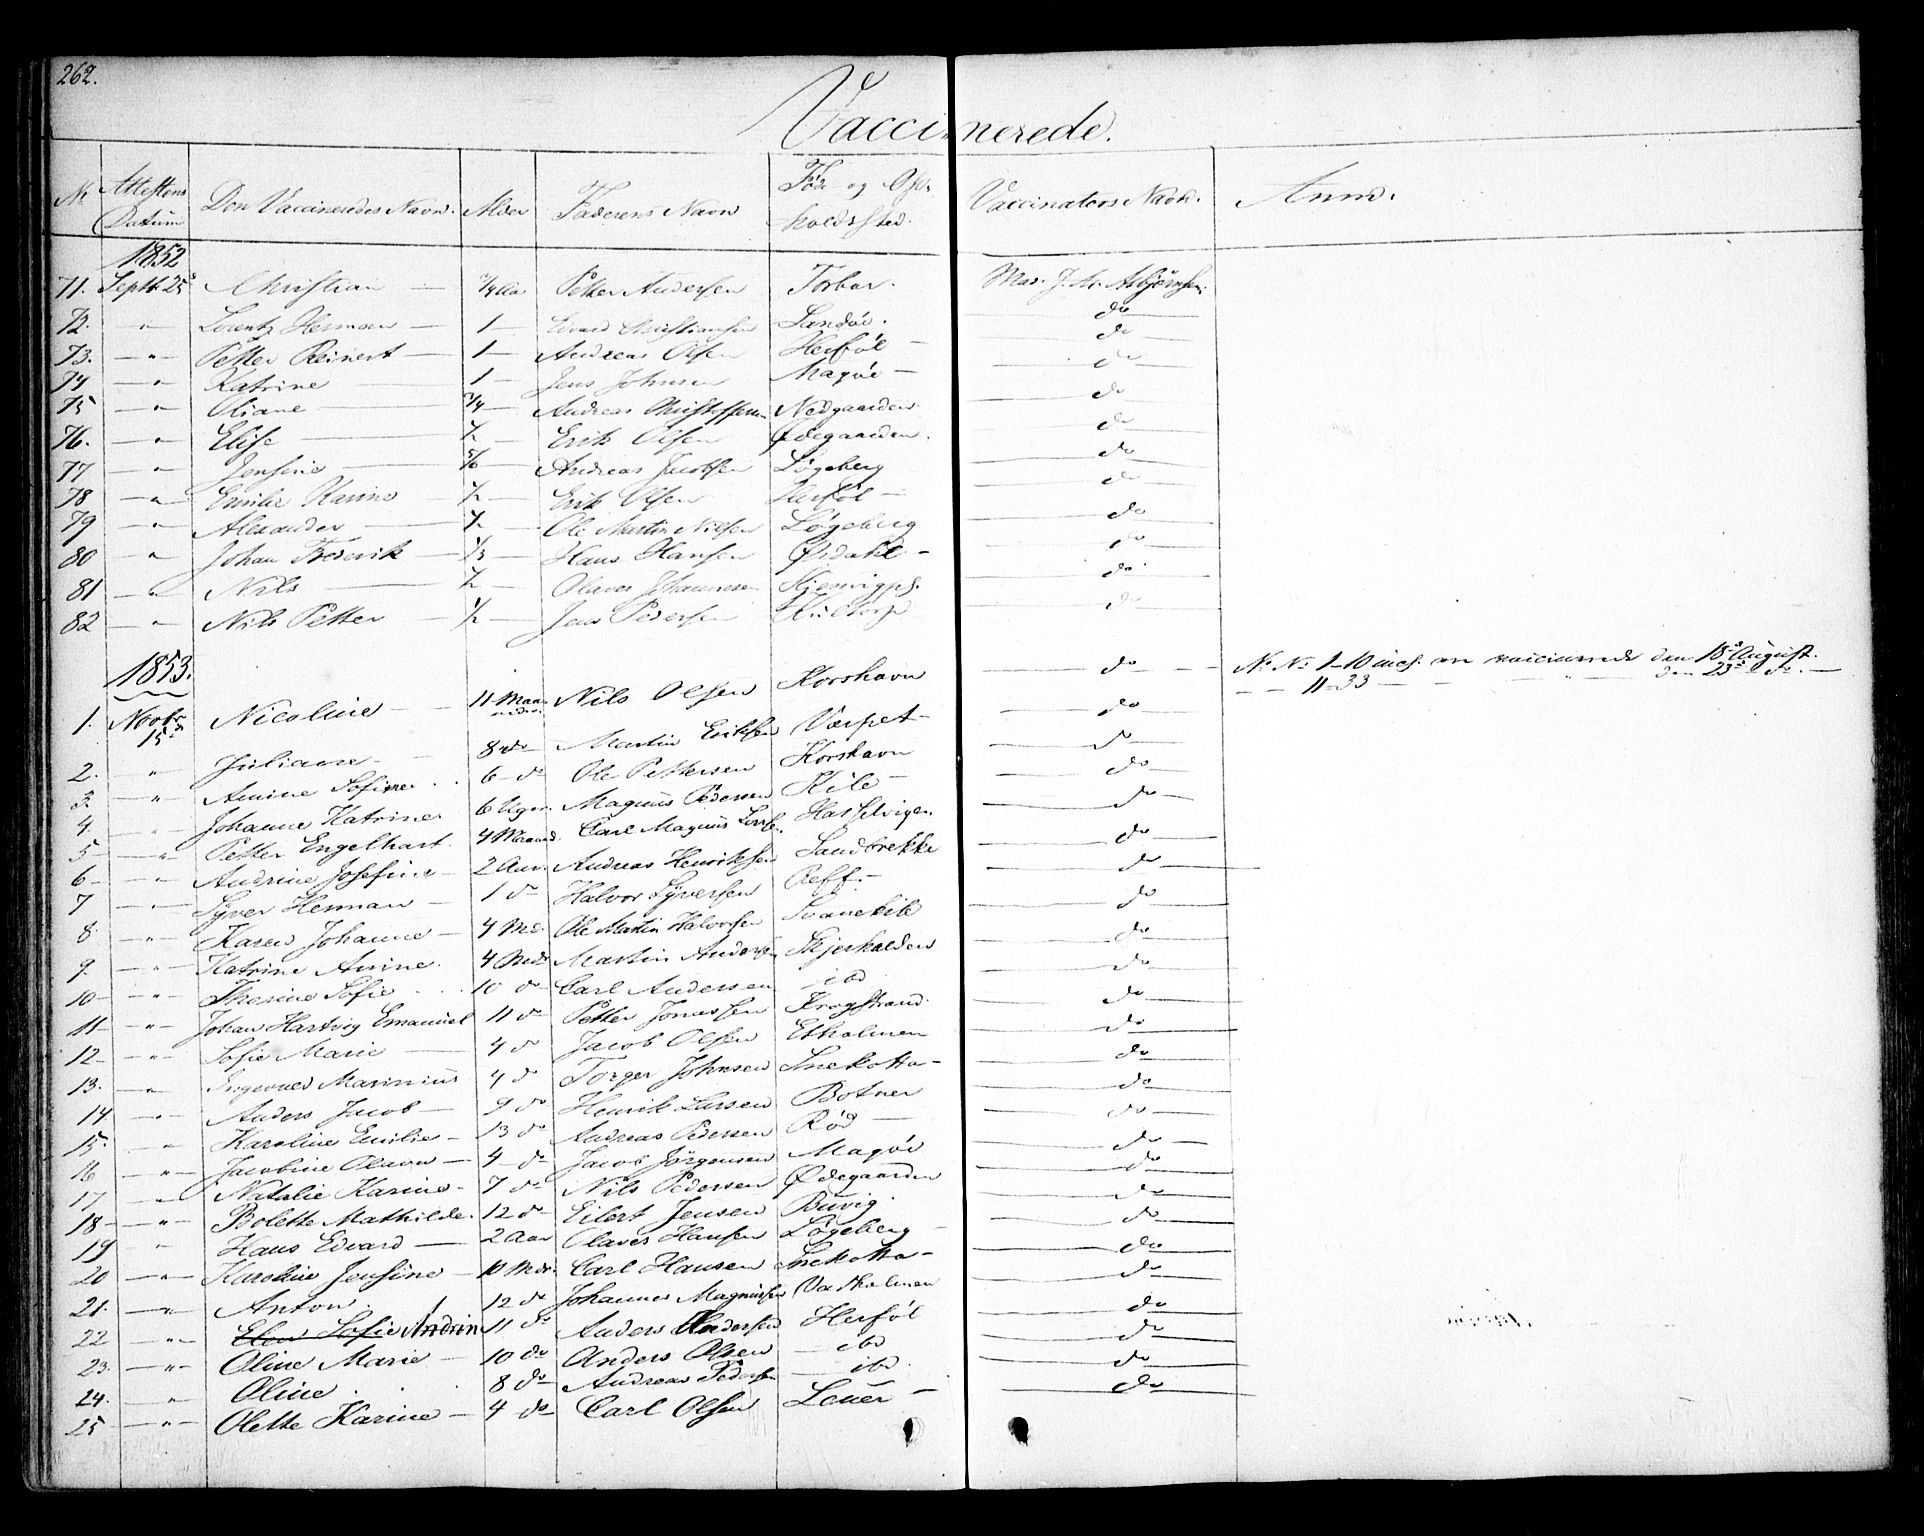 262.
Vaccinerede.
No Attestens Datum Den Vaccineredes Navn. Alder Faderens Navn Føde og Opholdssted. Vaccinators Navn. Anm.
1852
71. Septbr 25 Christian — 3/4 Aar Petter Andersen Torbar. Mad. J. M. Asbjørnsen
72. — " Lorentz Herman — 1 — Edvard Christiansen Sandøe. do
73. — " — Petter Reinert — 1 — Andreas Olsen Herføl — do
74 — " — Katrine 1 — Jens Johnsen Magøe — do
75 — " — Oliane — 3/4 — Andreas Christoffersen Nedgaarden do
76. — " Elise — 1/2 — Erik Olsen Ødegaarden. do
77 — " Jensine — 5/6 — Andreas Jacobsen Løgeberg do
78 — " — Emilie Karine — 1/2 — Erik Olsen Herføl — do
79 — " — Alexander — 1/2 — Ole Martin Nilsen Løgeberg do
80 — " Johan Frederik — 1/3 — Hans Hansen Ørdahl — do
81 — " Nils — 1/2 — Olaves Johannesen Kjenvigpl. do
82 — " Nils Petter — 1/2 — Jens Pedersen do
1853.
1. Novbr 15de Nicoline — 11 Maaneder. Nils Olsen Korshavn — do — No No 1–10 incl. ere vaccinerede den 18de August.
— — 11–33 — — " — den 23de do. —
2. " Juliane 8 do Martin Eriksen Værpet — do
3. " Amine Sofine 6 do Ole Pettersen Korshavn do
4. " Johanne Katrine 6 Uger Magnus Pedersen Kile — do
5 — " Petter Engelhart 4 Maaned. Carl Magnus Hasselvigen do
6 — " Andrine Josefine — 2 Aar. Andreas Henriksen Sandbrekke do
7 — " — Syver Herman — 1 do Halvor Syversen Reff. — do
8 — " — Karen Johanne — 4 Md. Ole Martin Halvorsen Svanekile do
9. — " — Katrine Amine. 4 Mdr Martin Andersen Skjerhalden do
10 — " — Thorine Sofie 10 do Carl Andersen — ibd do
11 — " — Johan Hartvig Emanuel 11 do Petter Jonassen Krogstrand. do
12 — " — Sofie Marie — 4 do Jacob Olsen Etholmen do
13. — " Ingevald Marinius 4 do Torger Johnsen Snekotta — do
14 — " — Anders Jacob — 9 do Henrik Larsen Botner do
15. " Karoline Emilie — 13 do Andreas Pedersen Rød — do
16 — " — Jacobine Olava — 4 do Jacob Jørgensen Magøe do
17 — " Natalie Karine — 7 do Nils Pedersen Ødegaarden do
18 — " — Bolette Mathilde. 12 do Eilert Jensen Buvig do
19 " Hans Edvard — 2 Aar Olaves Hansen Løgeberg — do
20 — " — Karoline Jensine — 10 Mdr. Carl Hansen Snekotta — do
21. — " — Anton. 12 do Johannes Magnussen Vadholmen do
22 — " — Elen Sofie Andrin 11 do Anders Andersen Herføl do
23. — " — Oline Marie — 10 do Anders Olsen — ibd do
24. — " Oline. 8 do Andreas Pedersen — ibd. do
25 — " — Olette Karine — 4 do Carl Olsen Leuer — do